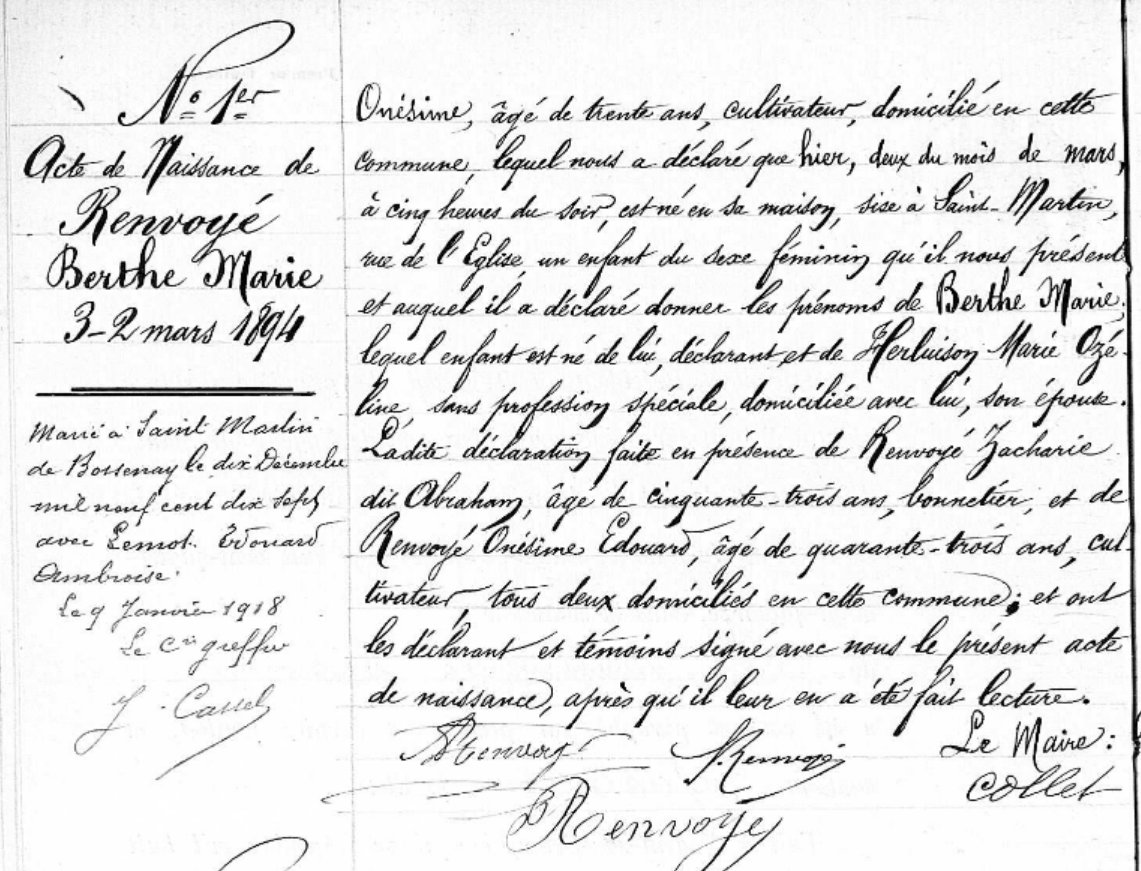 Nº 1er
Acte de Naissance de
Renvoyé
Berthe Marie
3-2 mars 1894
Marié à Saint Martin
de Bossenay le dix Décembre
mil neuf cent dix sept
avec Lemot. Edouard
Ambroise.
Le 9 Janvier 1918
Le Cis greffier
J. Cassel
Onésime, âgé de trente ans, cultivateur, domicilié en cette
commune, lequel nous a déclaré que hier, deux du mois de mars,
à cinq heures du soir, est né en sa maison, sise à Saint-Martin,
rue de l'Eglise un enfant du sexe féminin qu'il nous présente
et auquel il a déclaré donner les prénoms de Berthe Marie,
lequel enfant est né de lui, déclarant et de Herluison Marie Ozé-
line, sans profession spéciale, domiciliée avec lui, son épouse.
Ladite déclaration faite en présence de Renvoyé Zacharie
dit Abraham, âgé de cinquante-trois ans, bonnetier, et de
Renvoyé Onésime Edouard, âgé de quarante-trois ans, cul-
tivateur, tous deux domiciliés en cette commune; et ont
les déclarant et témoins signé avec nous le présent acte
de naissance, après qu'il leur en a été fait lecture.
Renvoyé Renvoyé Le Maire:
Collet
Renvoyé